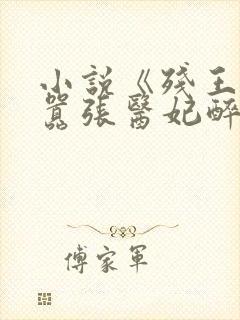 小說《殘王
囂張醫妃醉
傅家軍